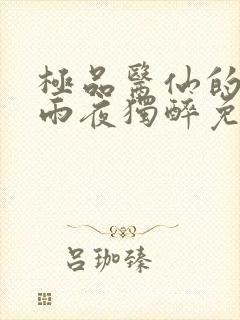 極品醫仙的
雨夜獨醉免
呂珈臻